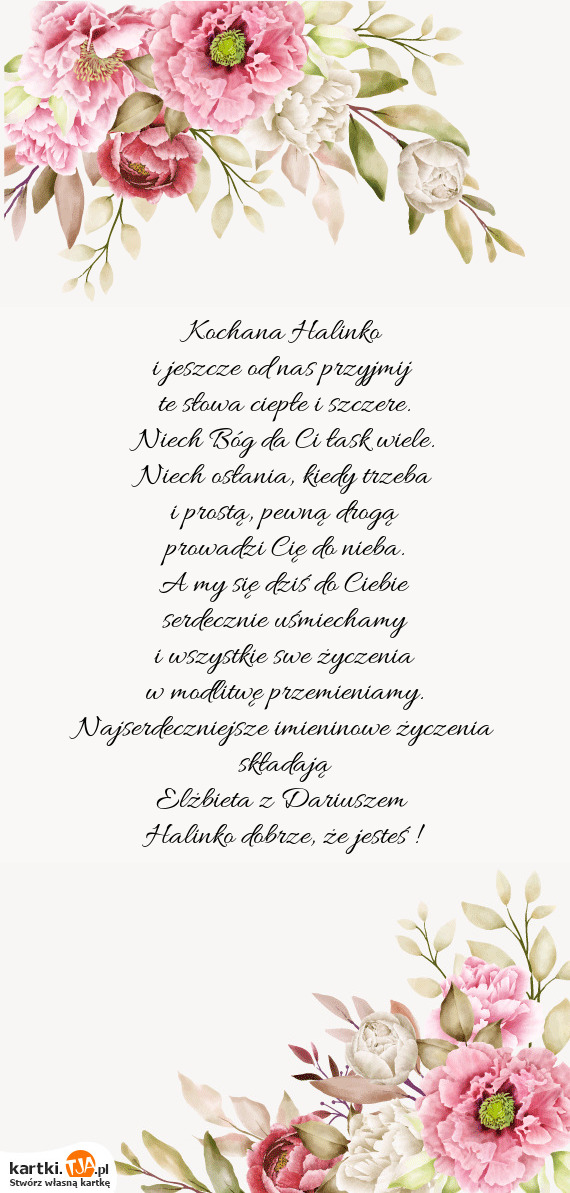 Kochana Halinko
i jeszcze od nas przyjmij
te słowa ciepłe i szczere.
Niech Bóg da Ci łask wiele.
Niech osłania, kiedy trzeba
i prostą, pewną drogą
prowadzi Cię do nieba.
A my się dziś do Ciebie
serdecznie uśmiechamy
i wszystkie swe życzenia
w modlitwę przemieniamy.
Najserdeczniejsze imieninowe życzenia
składają
Elżbieta z Dariuszem
Halinko dobrze, że jesteś !
kartki.TJA.pl
Stwórz własną kartkę